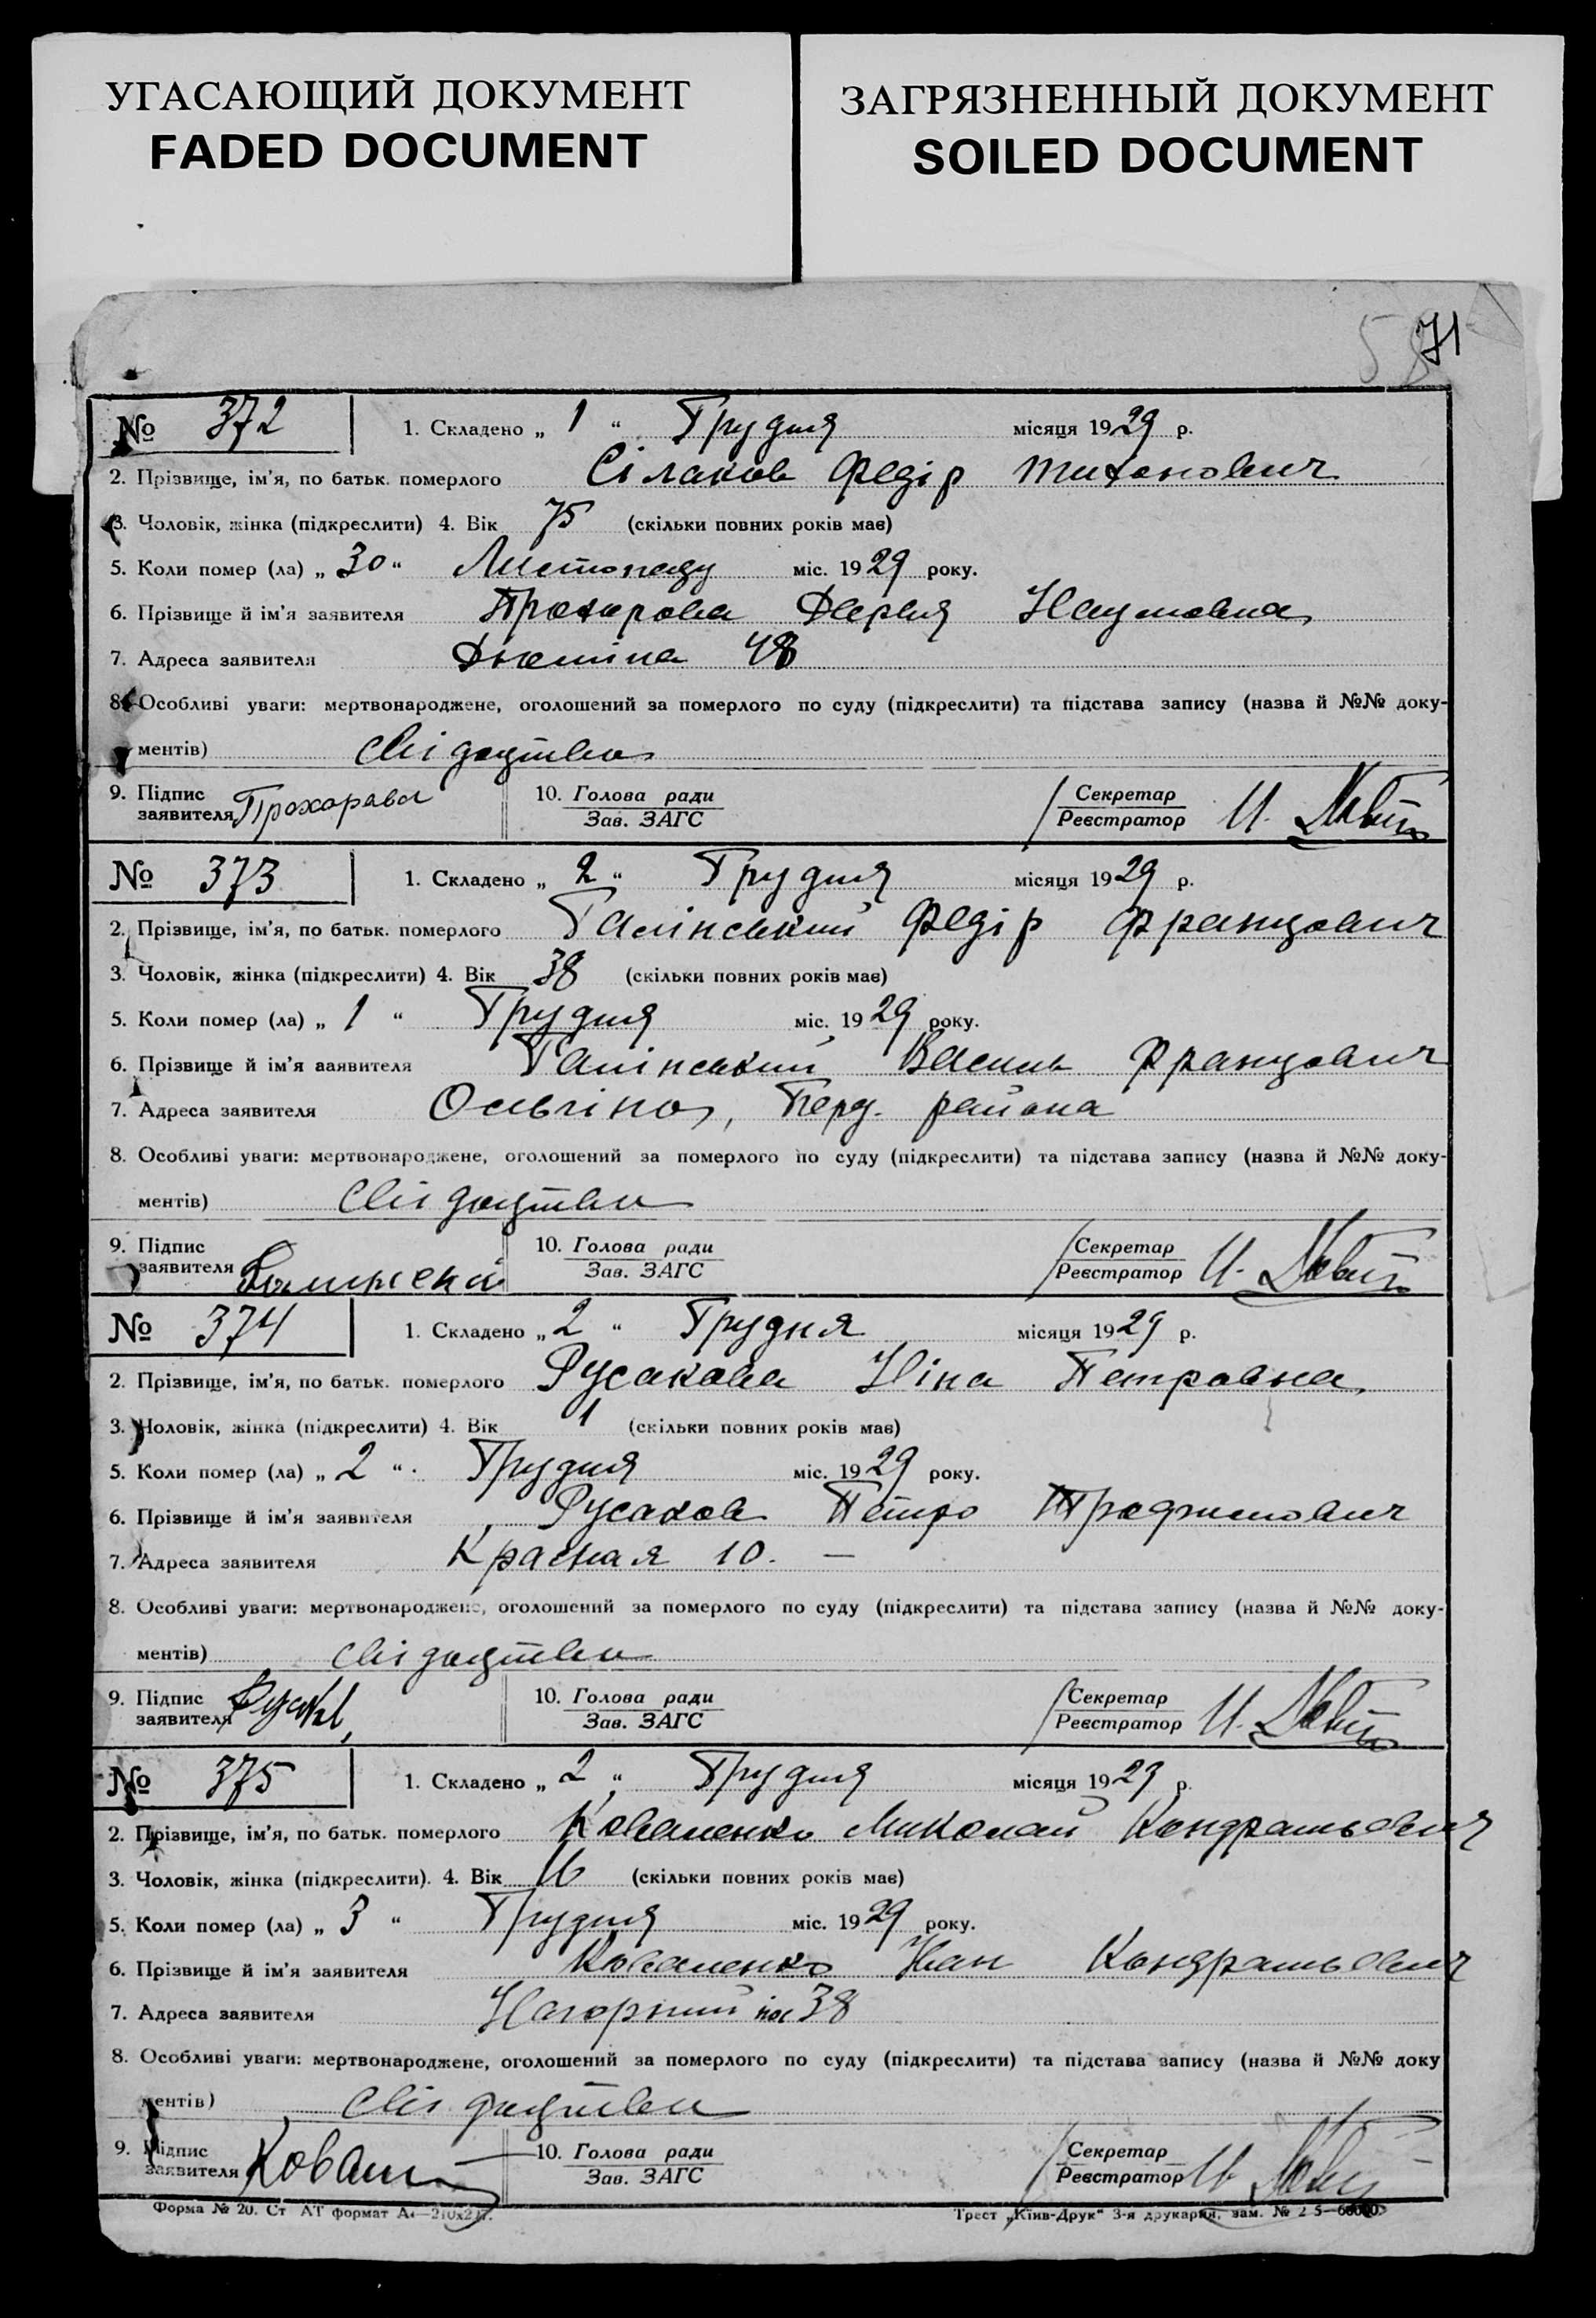 УГАСАЮЩИЙ ДОКУМЕНТ
FADED DOCUMENT
ЗАГРЯЗНЕННЫЙ ДОКУМЕНТ
SOILED DOCUMENT
71
№ 372 1. Складено „ 1 “ Грудня місяця 1929 р.
2. Прізвище, ім'я, по батьк. померлого Сілаков Федір Тихонович
3. Чоловік, жінка (підкреслити) 4. Вік 75 (скільки повних років має)
5. Коли помер (ла) „ 30 “ Листопаду міс. 1929 року.
6. Прізвище й ім'я заявителя Прохорова Дарья Наумовна
7. Адреса заявителя 48
8. Особливі уваги: мертвонароджене, оголошений за померлого по суду (підкреслити) та підстава запису (назва й №№ доку-
ментів) свідоцтво
9. Підпис заявителя Прохорова 10. Голова ради Зав. ЗАГС Секретар Реєстратор
№ 373 1. Складено „ 2 “ Грудня місяця 1929 р.
2. Прізвище, ім'я, по батьк. померлого Галінський Федір Францович
3. Чоловік, жінка (підкреслити) 4. Вік 38 (скільки повних років має)
5. Коли помер (ла) „ 1 “ Грудня міс. 1929 року.
6. Прізвище й ім'я заявителя Галінський Василь Францович
7. Адреса заявителя района
8. Особливі уваги: мертвонароджене, оголошений за померлого по суду (підкреслити) та підстава запису (назва й №№ доку-
ментів) свідоцтво
9. Підпис заявителя 10. Голова ради Зав. ЗАГС Секретар Реєстратор
№ 374 1. Складено „ 2 “ Грудня місяця 1929 р.
2. Прізвище, ім'я, по батьк. померлого Русакова Ніна Петровна
3. Чоловік, жінка (підкреслити) 4. Вік 1 (скільки повних років має)
5. Коли помер (ла) „ 2 “ Грудня міс. 1929 року.
6. Прізвище й ім'я заявителя Русаков Петро Трофимович
7. Адреса заявителя Красная 10. —
8. Особливі уваги: мертвонароджене, оголошений за померлого по суду (підкреслити) та підстава запису (назва й №№ доку-
ментів) свідоцтво
9. Підпис заявителя 10. Голова ради Зав. ЗАГС Секретар Реєстратор
№ 375 1. Складено „ 2 “ Грудня місяця 1929 р.
2. Прізвище, ім'я, по батьк. померлого Коваленко Миколай Кондратьович
3. Чоловік, жінка (підкреслити). 4. Вік 16 (скільки повних років має)
5. Коли помер (ла) „ 3 “ Грудня міс. 1929 року.
6. Прізвище й ім'я заявителя Коваленко Іван Кондратьович
7. Адреса заявителя Нагорний 38
8. Особливі уваги: мертвонароджене, оголошений за померлого по суду (підкреслити) та підстава запису (назва й №№ доку
ментів) свідоцтво
9. Підпис заявителя 10. Голова ради Зав. ЗАГС Секретар Реєстратор
Форма № 20. Ст АТ формат Трест „Київ-Друк“ 3-я друкарня, зам. №